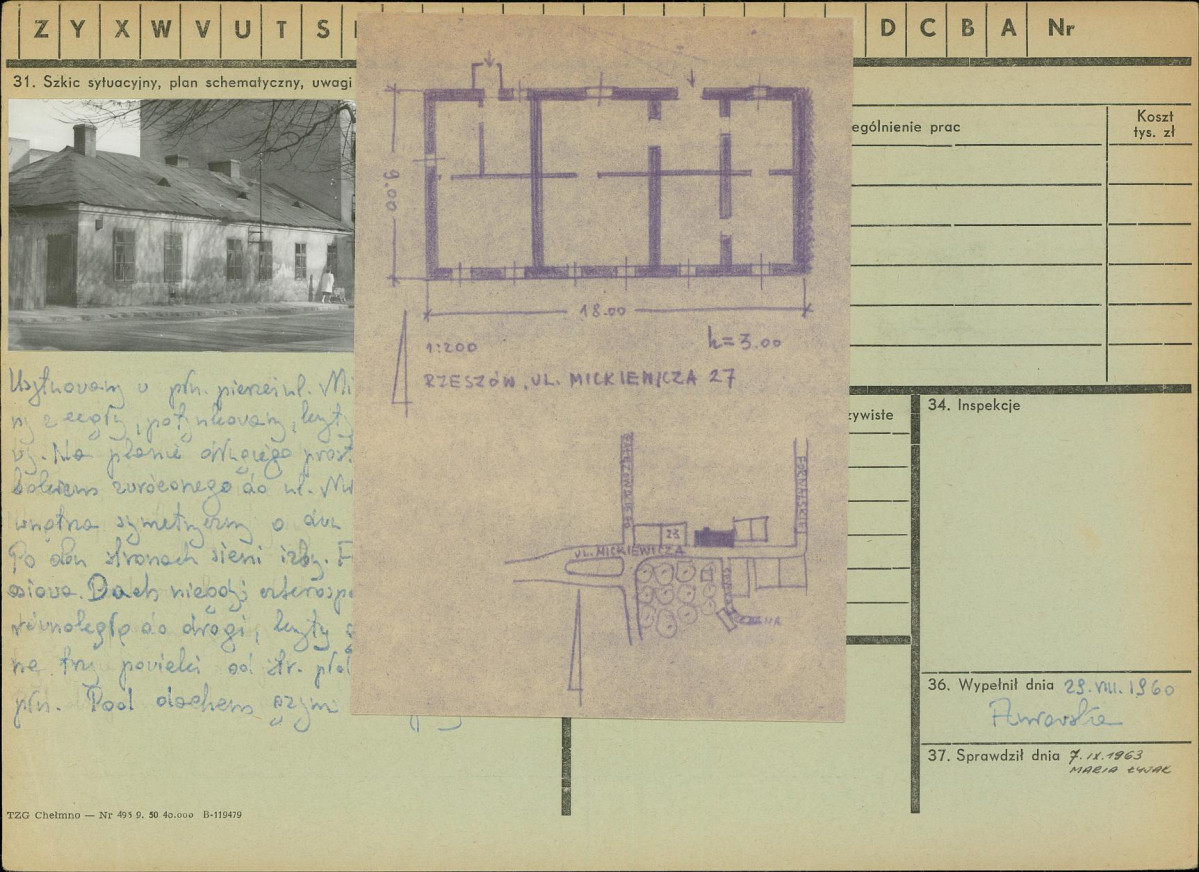 Z Y X W V U T S D C B A Nr
31. Szkic sytuacyjny, plan schematyczny, uwagi
ególnienie prac
Koszt
tys. zł
9.00
18.00
1:200
h=3.00
RZESZÓW, UL. MICKIEWICZA 27
FORNALSKIEJ
23
UL. MICKIEWICZA
Usytuowany w płn. pierzei ul. Mi
ny z cegły, potynkowany, kryty
. Na planie długiego prost
bokiem zwróconego do ul. Mi
wnętrza symetryczny o dwu
Po obu stronach sieni izby. F
osiowa. Dach niegdyś czterospa
równoległą do drogi, kryty
na trzy powieki od str. płd
płn. Pod dachem gzym
zywiste
34. Inspekcje
36. Wypełnił dnia 29.VIII.1960
37. Sprawdził dnia 7.IX.1963
MARIA
TZG Chełmno — Nr 493 9. 50 40.000 B-119479